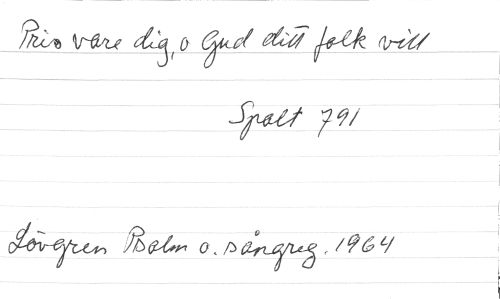 Pris vare dig, o Gud ditt folk vill
Spalt 791
Lövgren Psalm o. sångreg. 1964